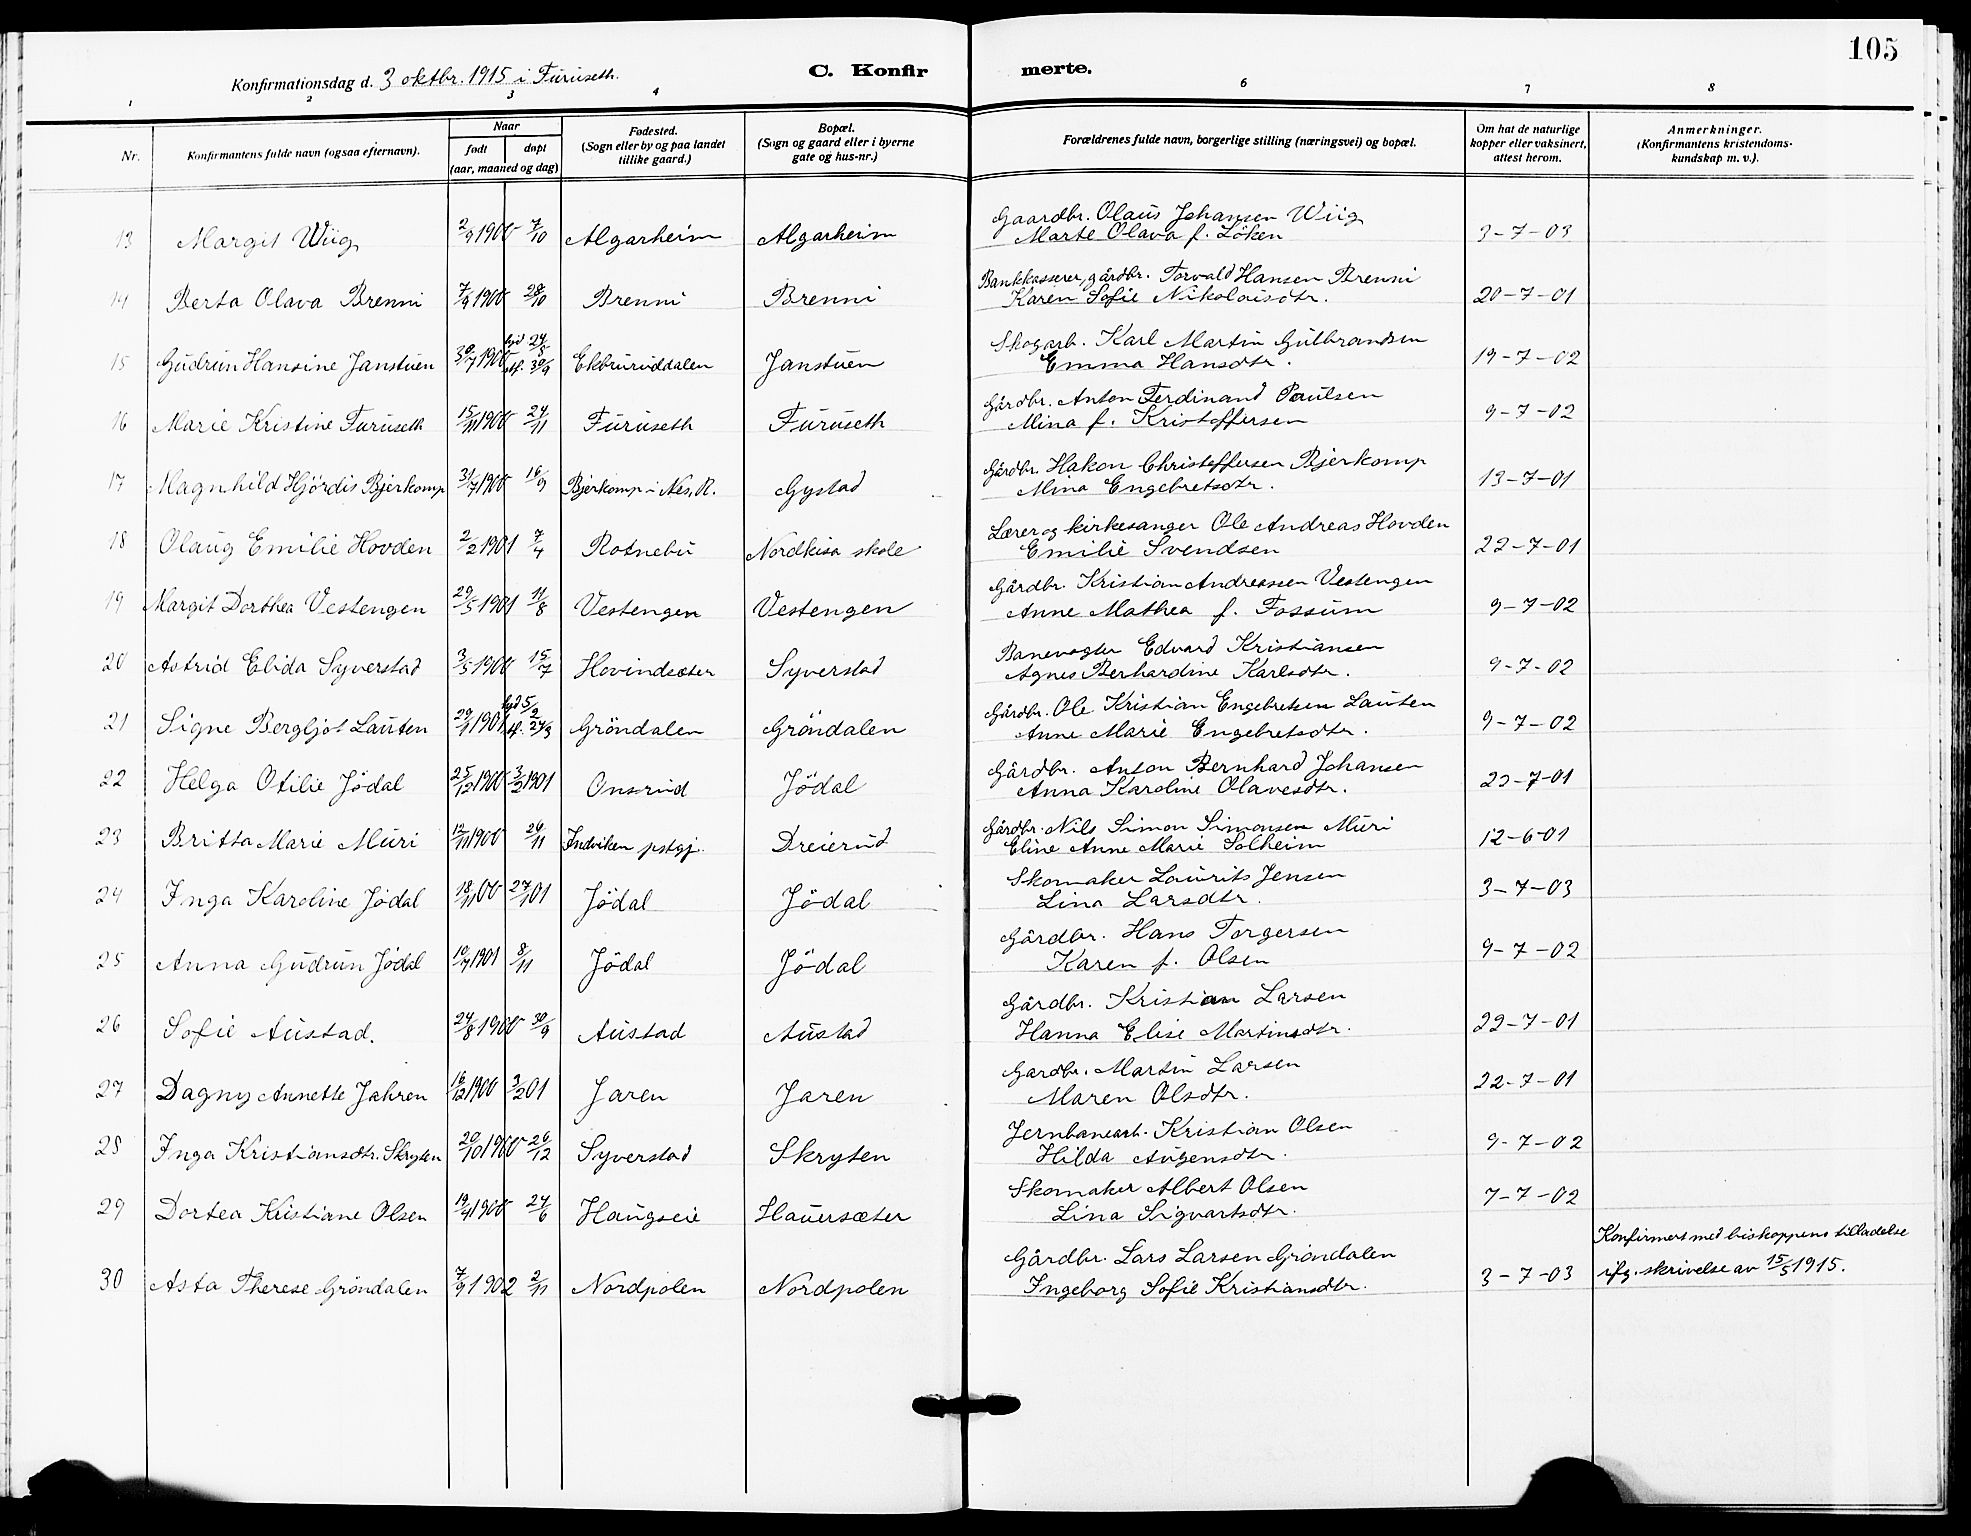 105
Konfirmationsdag d. 3 oktbr. 1915 i Furuseth.
C. Konfirmerte.
1 2 3 4 6 7 8
Nr. Konfirmantens fulde navn (ogsaa efternavn). Naar født døpt (aar, maaned og dag) Fødested. (Sogn eller by og paa landet tillike gaard.) Bopæl. (Sogn og gaard eller i byerne gate og hus-nr.) Forældrenes fulde navn, borgerlige stilling (næringsvei) og bopæl. Om hat de naturlige kopper eller vaksinert, attest herom. Anmerkninger. (Konfirmantens kristendomskundskap m. v.).
13 Margit Wiig 2/9 1900 7/10 Algarheim Algarheim Gaardbr. Olaus Johansen Wiig
Marte Olava f. Löken 3-7-03
14 Berta Olava Brenni 7/9 1900 28/10 Brenni Brenni Bankkasserer, gårdbr. Torvald Hansen Brenni
Karen Sofie Nikolaisdtr. 20-7-01
15 Gudrun Hansine Janstuen 30/7 1900 24/8 30/9 Ekbruruddalen Janstuen Skogarb. Karl Martin Gulbrandsen
Emma Hansdtr. 19-7-02
16 Marie Kristine Furuseth 15/11 1900 24/11 Furuseth Furuseth Gårdbr. Anton Ferdinand Paulsen
Mina f. Kristoffersen 9-7-02
17 Magnhild Hjördis Bjerkomp 31/7 1900 16/9 Bjerkomp i Nes, R. Gystad Gårdbr. Hakon Christoffersen Bjerkomp
Mina Engebretsdtr. 13-7-01
18 Olaug Emilie Hovden 2/2 1901 7/4 Rotnebu Nordkisa skole Lærer og kirkesanger Ole Andreas Hovden
Emilie Svendsen 22-7-01
19 Margit Dorthea Vestengen 29/5 1901 11/8 Vestengen Vestengen Gårdbr. Kristian Andreassen Vestengen
Anne Mathea f. Fossum 9-7-02
20 Astrid Elida Syverstad 3/5 1900 15/7 Hovindsæter Syverstad Banevogter Edvard Kristiansen
Agnes Berhardine Karlsdtr. 9-7-02
21 Signe Bergljot Lauten 29/1 1901 5/2 24/3 Gröndalen Gröndalen Gårdbr. Ole Kristian Engebretsen Lauten
Anne Marie Engebretsdtr. 9-7-02
22 Helga Otilie Jödal 25/12 1900 3/2 1901 Onsrud Jödal Gårdbr. Anton Bernhard Johansen
Anna Karoline Olavesdtr. 22-7-01
23 Britta Marie Muri 12/11 1900 26/11 Indviken pstgj. Dreierud Gårdbr. Nils Simon Simonsen Muri
Eline Anne Marie Solheim 12-6-01
24 Inga Karoline Jödal 18/11 00 27/1 01 Jödal Jödal Skomaker Laurits Jensen
Lina Larsdtr. 3-7-03
25 Anna Gudrun Jödal 10/7 1901 8/11 Jödal Jödal Gårdbr. Hans Torgersen
Karen f. Olsen 9-7-02
26 Sofie Austad. 24/8 1900 30/9 Austad Austad Gårdbr. Kristian Larsen
Hanna Elise Martinsdtr. 22-7-01
27 Dagny Annette Jahren 16/12 1900 3/2 01 Jaren Jaren Gardbr. Martin Larsen
Maren Olsdtr. 22-7-01
28 Inga Kristiansdtr. Skryten 20/10 1900 26/12 Syverstad Skryten Jernbanearb. Kristian Olsen
Hilda Augensdtr. 9-7-02
29 Dortea Kristiane Olsen 19/4 1900 24/6 Haugseie Hauersæter Skomaker Albert Olsen
Lina Sigvartsdtr. 7-7-02
30 Asta Therese Gröndalen 7/9 1902 2/11 Nordpolen Nordpolen Gårdbr. Lars Larsen Gröndalen
Ingeborg Sofie Kristiansdtr. 3-7-03 Konfirmert med biskoppens tilladelse
ifg. skrivelse av 15/5 1915.